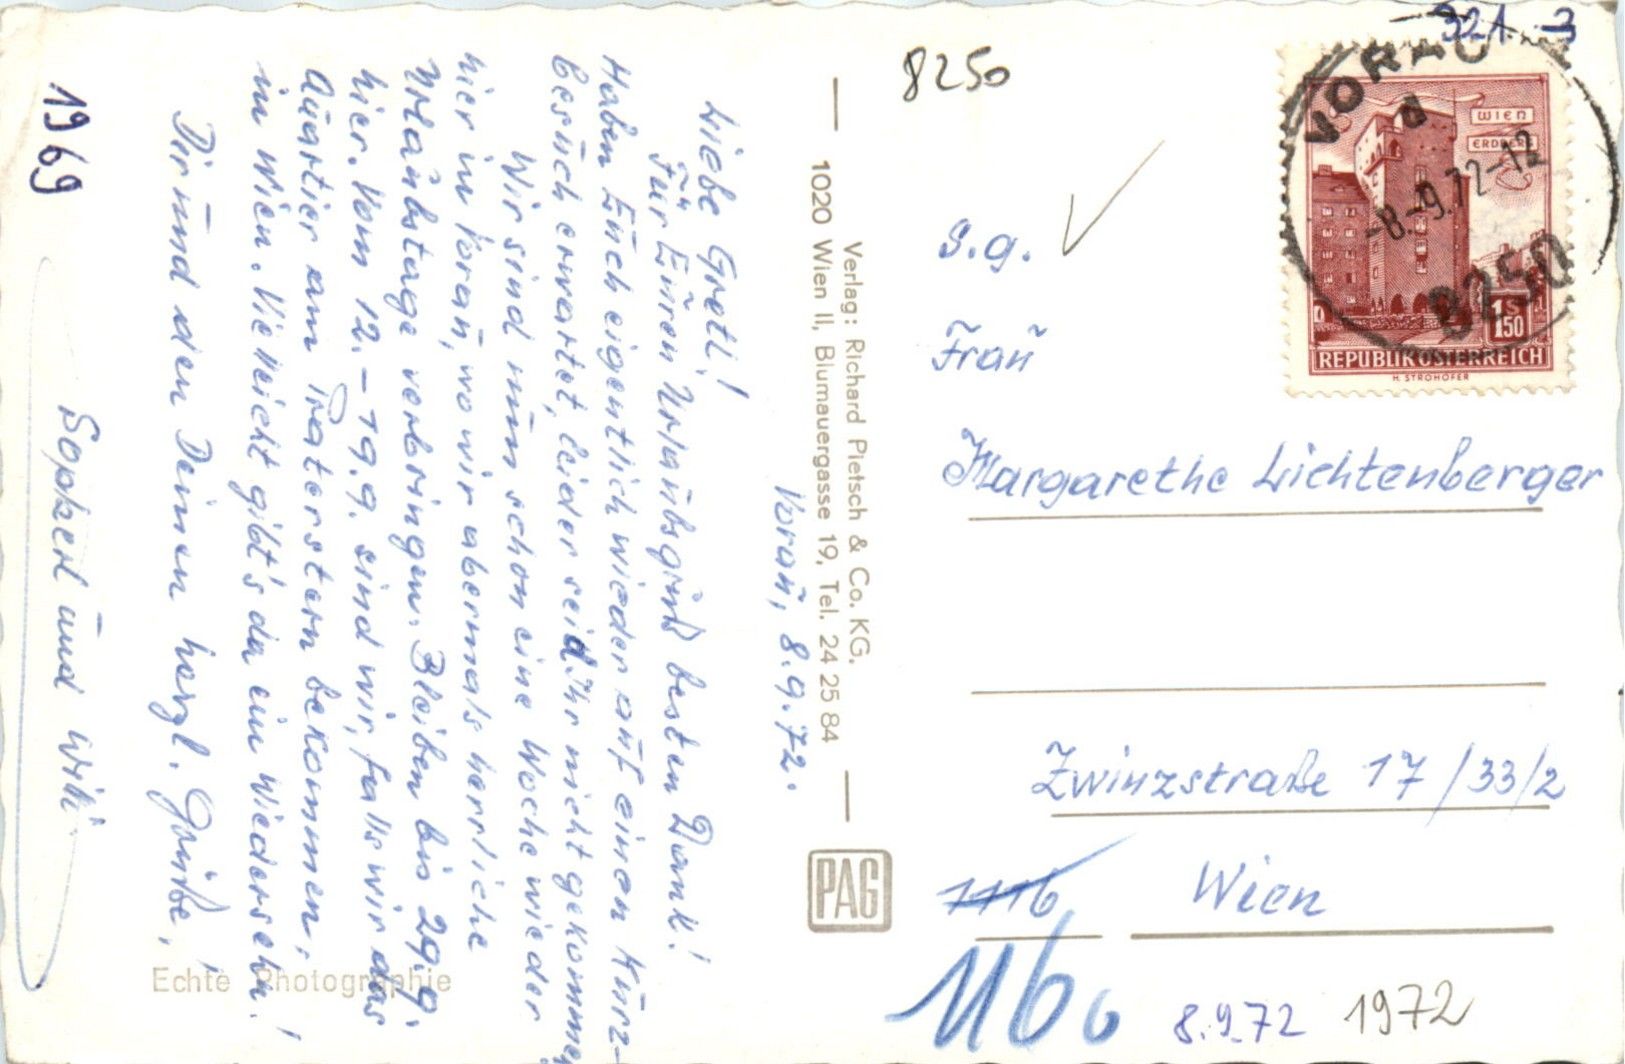 Vorau, 8.9.72.
Liebe Gretl!
Für Euren Urlaubsgruß besten Dank!
Haben Euch eigentlich wieder auf einen Kurz-
besuch erwartet, leider seid Ihr nicht gekommen.
Wir sind nun schon eine Woche wieder
hier in Vorau, wo wir abermals herrliche
Urlaubstage verbringen. Bleiben bis 29.9.
hier. Vom 12.–19.9. sind wir, falls wir das
Quartier am Praterstern bekommen,
in Wien. Vielleicht gibt's da ein Wiedersehn!
Dir und den Deinen herzl. Grüße,
Sopherl und Willi
1969
Echte Photographie
Verlag: Richard Pietsch & Co. KG.
1020 Wien II, Blumauergasse 19, Tel. 24 25 84
PAG
8250
321 3
VORAU
d
-8.-9.72-12
8250
WIEN
ERDBERG
1S50
REPUBLIK ÖSTERREICH
H. STROHOFER
S.g.
Frau
Margarethe Lichtenberger
Zwinzstraße 17/33/2
1116 Wien
1160
8.9.72 1972